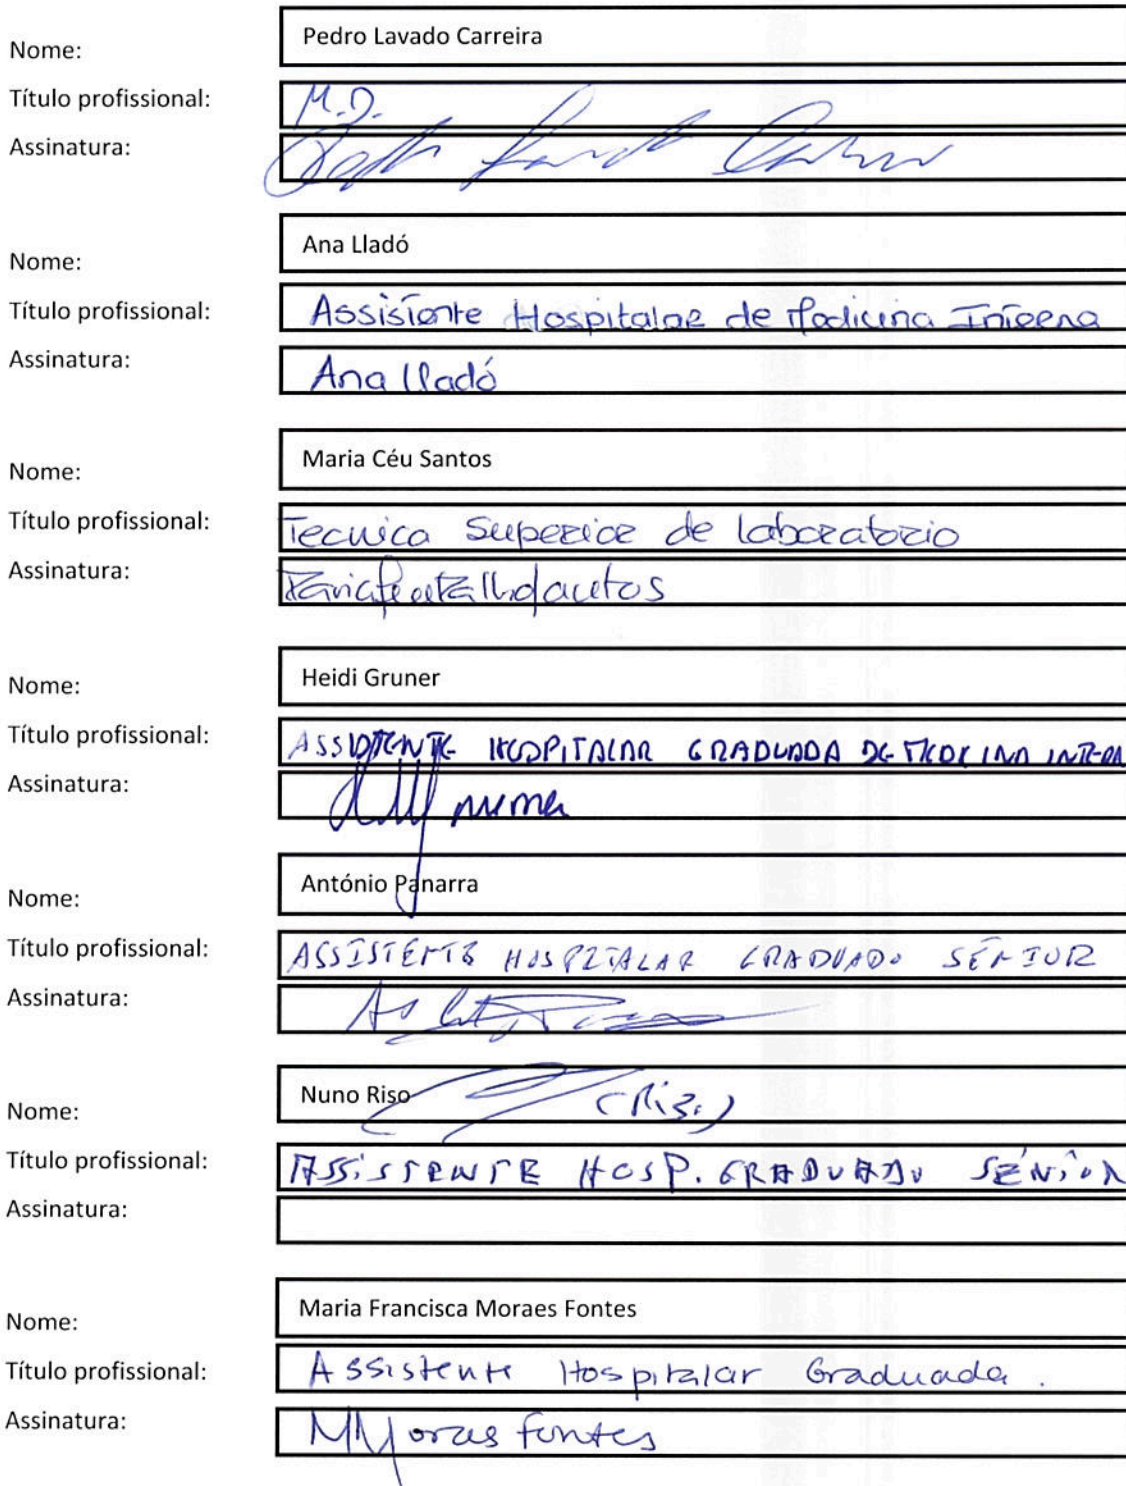 Nome: Pedro Lavado Carreira
Título profissional: M.D.
Assinatura:
Nome: Ana Lladó
Título profissional: Assistente Hospitalar de Medicina Interna
Assinatura: Ana Lladó
Nome: Maria Céu Santos
Título profissional: Tecnica Superior de laboratorio
Assinatura:
Nome: Heidi Gruner
Título profissional: ASSISTENTE HOSPITALAR GRADUADA DE MEDICINA INTERNA
Assinatura:
Nome: António Panarra
Título profissional: ASSISTENTE HOSPITALAR GRADUADO SÉNIOR
Assinatura:
Nome: Nuno Riso (Riso)
Título profissional: ASSISTENTE HOSP. GRADUADO SÉNIOR
Assinatura:
Nome: Maria Francisca Moraes Fontes
Título profissional: Assistente Hospitalar Graduada.
Assinatura: MMoraes Fontes